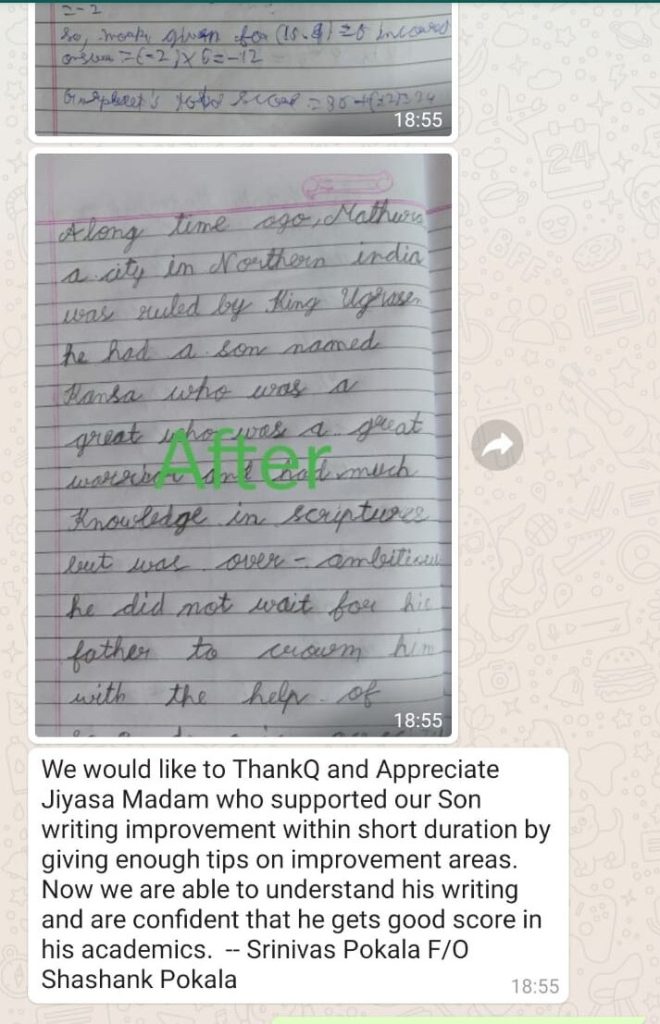 =-2
So, marks given for (15-9) = 6 incorrect
answer = (-2) × 6 = -12
total score = 36 + (-12) = 24
18:55
A long time ago, Mathura
a city in Northern india
was ruled by King Ugrasen
he had a son named
Kansa who was a
great who was a great
After
warrior and had much
Knowledge in scriptures
but was over-ambitious
he did not wait for his
father to crown him
with the help of
18:55
We would like to ThankQ and Appreciate
Jiyasa Madam who supported our Son
writing improvement within short duration by
giving enough tips on improvement areas.
Now we are able to understand his writing
and are confident that he gets good score in
his academics. -- Srinivas Pokala F/O
Shashank Pokala
18:55